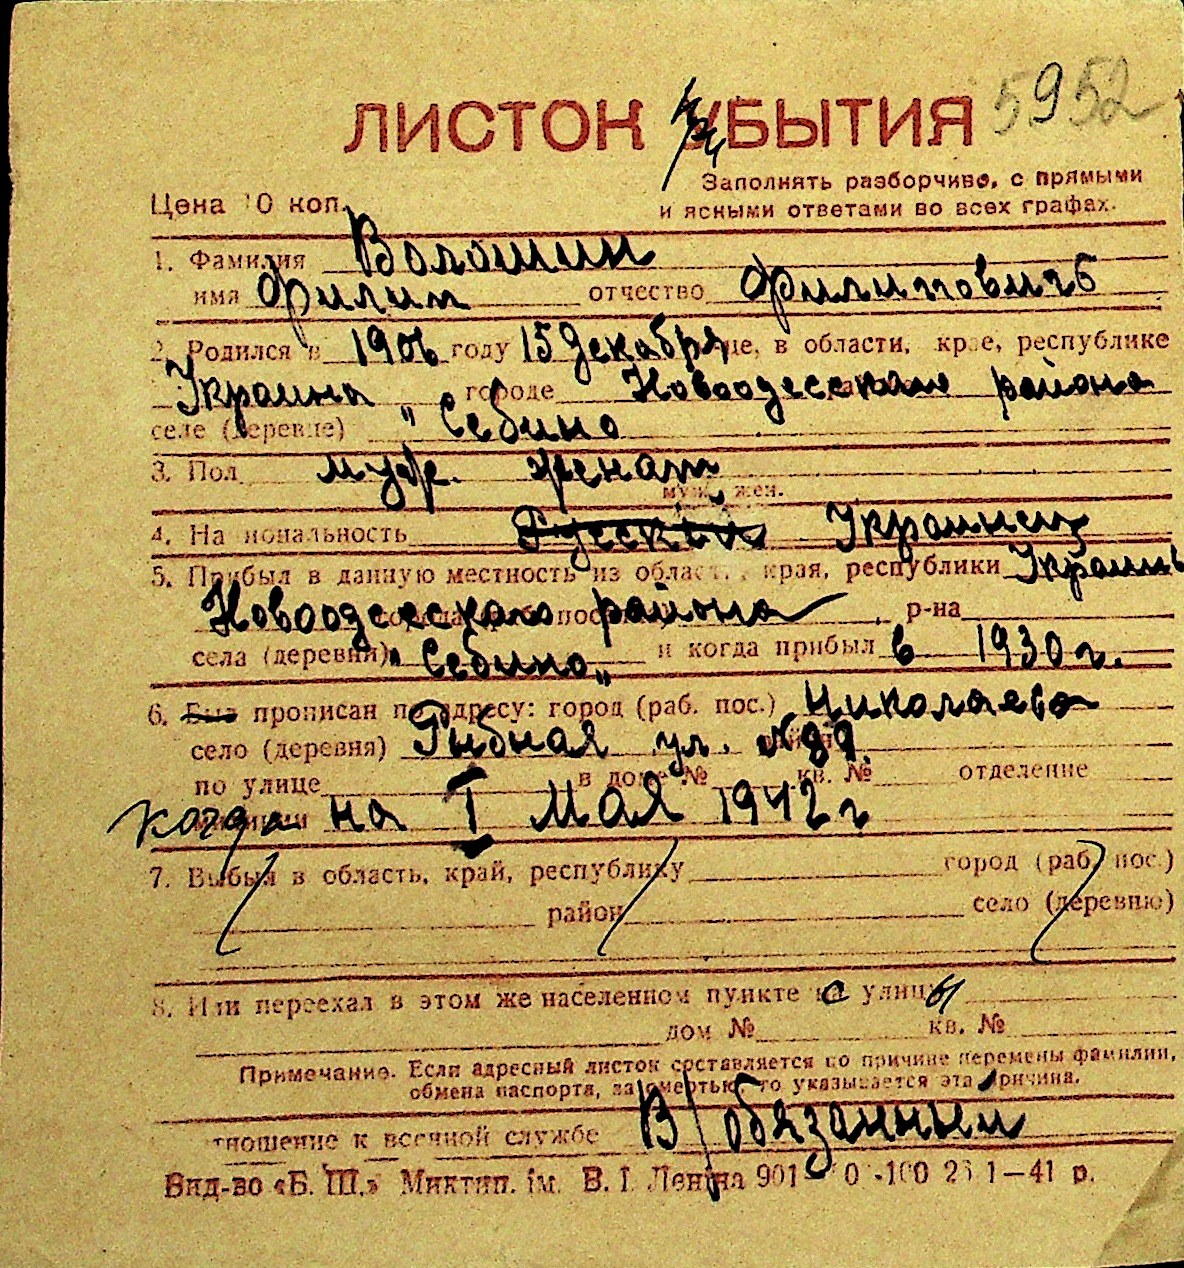 5952
ЛИСТОК УБЫТИЯ
Заполнять разборчиво, с прямыми
Цена 10 коп. и ясными ответами во всех графах.
1. Фамилия Волошин
имя Филип отчество Филиповичъ
2. Родился в 1906 году 15 декабря це, в области, крае, республике
Украина городе Новоодесская района
селе (деревне) "Себино
3. Пол муж. женат
муж. жен.
4. Национальность Русский Украинец
5. Прибыл в данную местность из области, края, республики Украины
Новоодесского района р-на
села (деревни) "Себино" и когда прибыл в 1930 г.
6. Был прописан по адресу: город (раб. пос.) Николаево
село (деревня) Рыбная ул. №89
по улице в доме № кв. № отделение
милиции когда на I МАЯ 1942 г
7. Выбыл в область, край, республику город (раб. пос.)
район село (деревню)
8. Или переехал в этом же населенном пункте с улицы
дом № кв. №
Примечание. Если адресный листок составляется по причине перемены фамилии,
обмена паспорта, за смертью, то указывается эта причина.
Отношение к военной службе В/обязанный
Вид-во «Б. Ш.» Миктип. ім. В. І. Леніна 901 1—41 р.